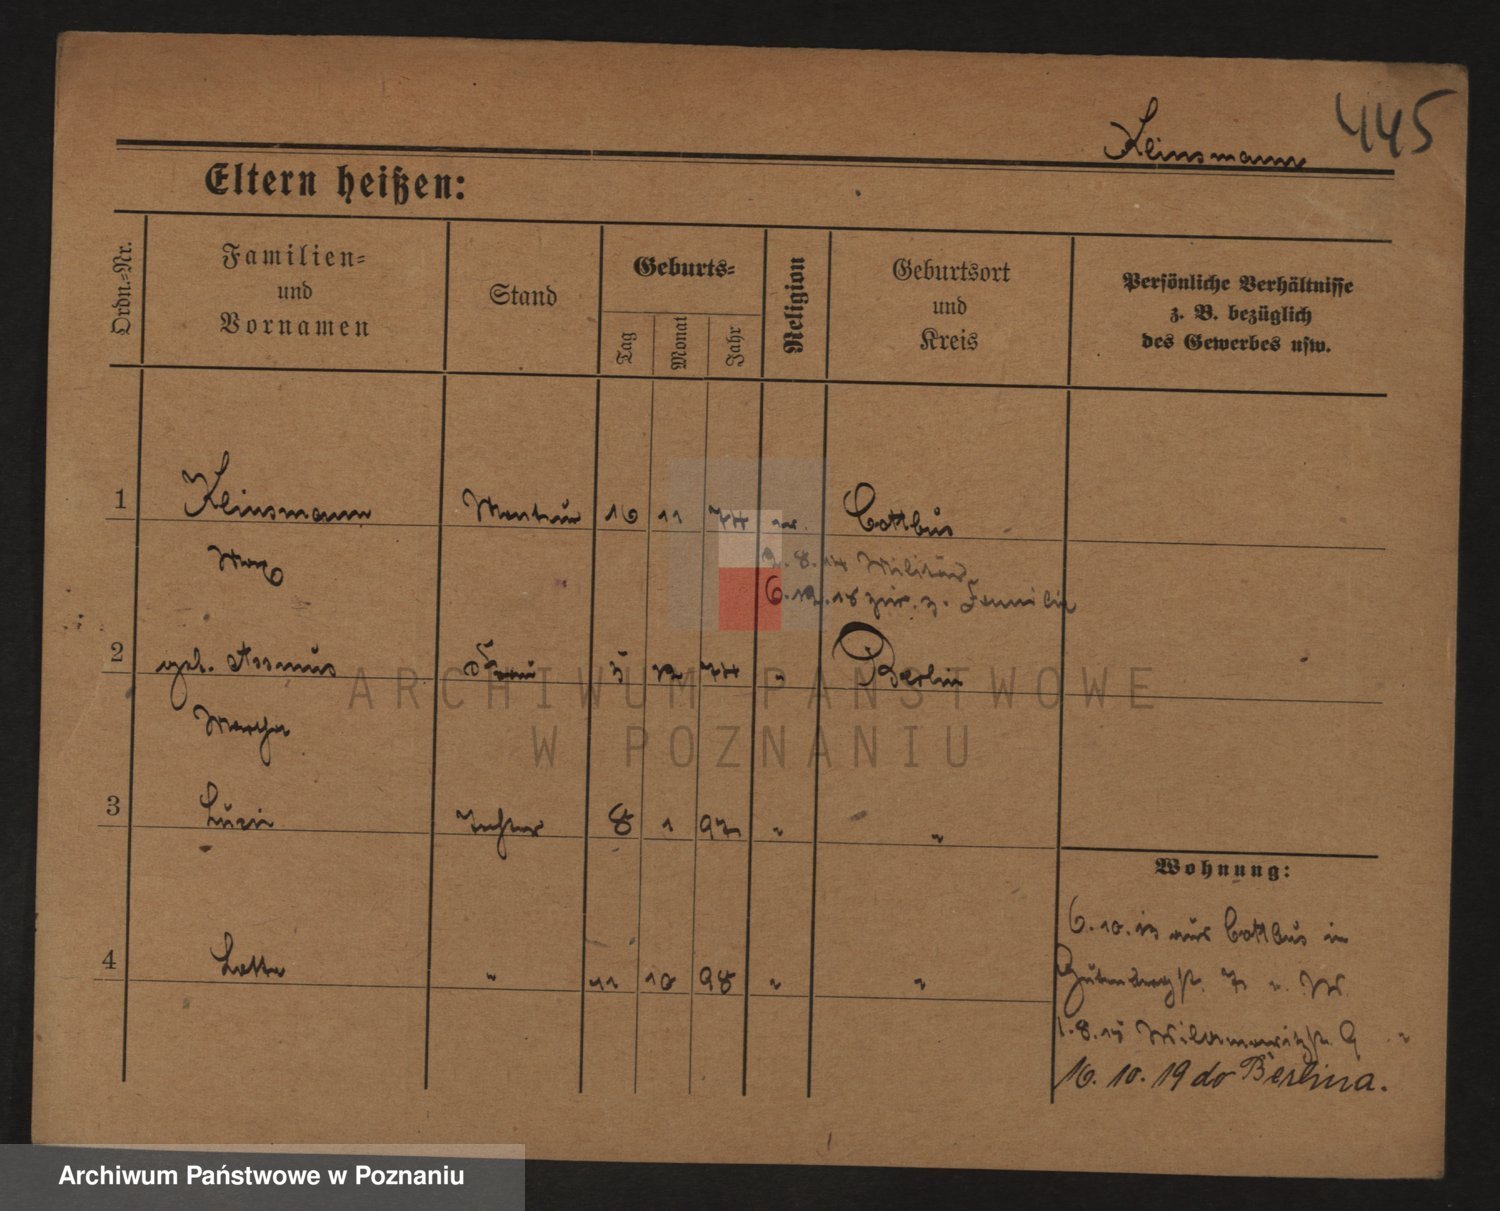 445
Kleinsmann
Eltern heißen:
Ordn.-Nr.
Familien- und Vornamen
Stand
Geburts-
Tag
Monat
Jahr
Religion
Geburtsort und Kreis
Persönliche Verhältnisse z. B. bezüglich des Gewerbes usw.
1 Kleinsmann 16 11 74 ev. Cottbus
Max 2.8.14 Militär
6.12.18 zur. z. Familie
2 geb. Assmus Frau 5 12 74 " Berlin
Martha
3 Luzie Tochter 8 1 97 " "
Wohnung:
6.10.13 aus Cottbus in
4 Lotte " 11 10 98 " "
Gutenbergstr.
1.8.15 Wilamowitzstr. 9 "
16.10.19 do Berlina.
ARCHIWUM PAŃSTWOWE
W POZNANIU
Archiwum Państwowe w Poznaniu